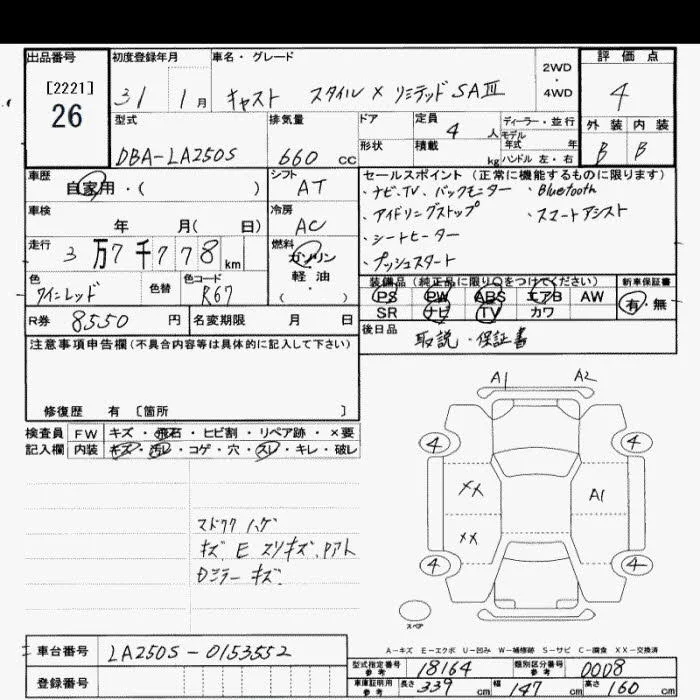 出品番号
[2221]
26
初度登録年月
31 1月
車名・グレード
キャスト スタイル X リミテッド SAⅢ
2WD
・
4WD
評価点
4
外装 内装
B B
型式
DBA-LA250S
排気量
660 cc
ドア
形状
定員
4 人
積載
kg
ディーラー・並行
モデル年式 年
ハンドル 左・右
車歴
自家用・( )
シフト
AT
車検
年 月( 日)
冷房
AC
走行
3万7千778 km
燃料
ガソリン
軽油
( )
色
ワインレッド
色替
色コード
R67
セールスポイント(正常に機能するものに限ります)
・ナビ・TV、バックモニター ・Bluetooth
・アイドリングストップ ・スマートアシスト
・シートヒーター
・プッシュスタート
装備品(純正品に限り○をつけてください)
PS PW ABS エアB AW
SR ナビ TV カワ
新車保証書
有・無
R券 8550 円
名変期限 月 日
後日品
取説・保証書
注意事項申告欄(不具合内容等は具体的に記入して下さい)
修復歴 有 〔箇所 〕
検査員
記入欄
FW キズ・飛石・ヒビ割・リペア跡・×要
内装 キズ・汚レ・コゲ・穴・スレ・キレ・破レ
マドワク ハゲ
キズ、E スリキズ、Pアト
Dミラー キズ
A1 A2
4 4
XX A1
XX
4 4
スペア
A-キズ E-エクボ U-凹み W-補修跡 S-サビ C-腐食 XX-交換済
車台番号
LA250S-0153552
登録番号
型式指定番号
参考
18164
類別区分番号
参考
0008
車庫証明用
参考
長さ 339 cm 幅 147 cm 高さ 160 cm